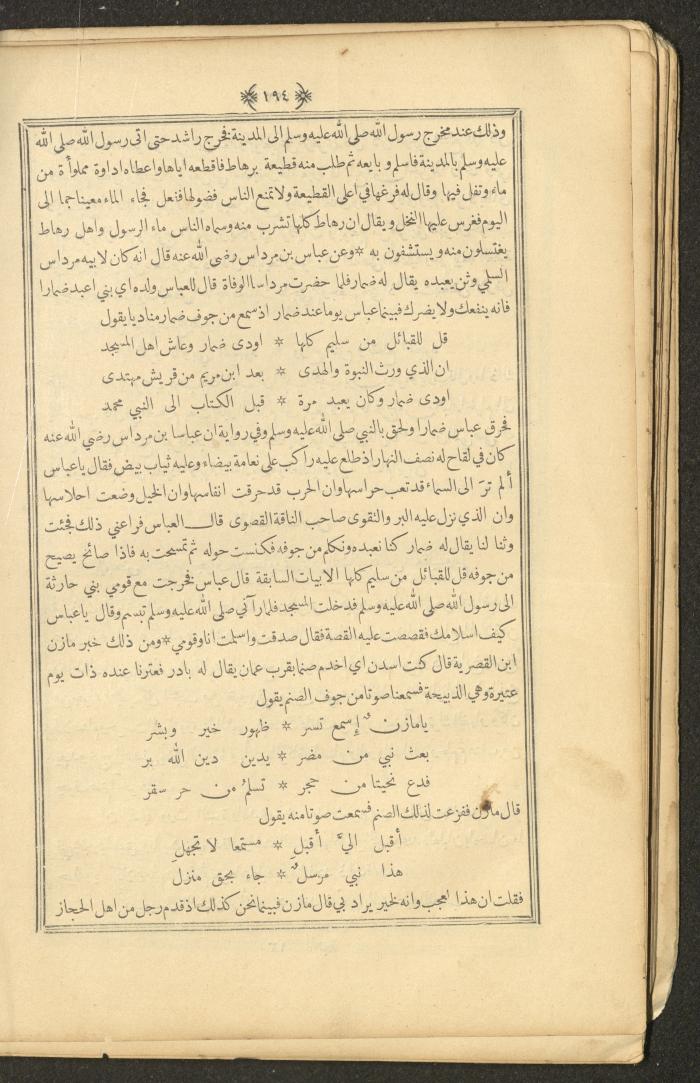 ١٩٤
وذلك عند مخرج رسول الله صلى الله عليه وسلم الى المدينة فخرج راشد حتى اتى رسول الله صلى الله
عليه وسلم بالمدينة فاسلم وبايعه ثم طلب منه قطيعة برهاط فاقطعه اياها واعطاه اداوة مملوأة من
ماء وتفل فيها وقال له فرغها في اعلى القطيعة ولا تمنع الناس فضولها ففعل فجاء الماء معينا جما الى
اليوم فغرس عليها النخل ويقال ان رهاط كلها تشرب منه وسماه الناس ماء الرسول واهل رهاط
يغتسلون منه ويستشفون به * وعن عباس بن مرداس رضى الله عنه قال انه كان لابيه مرداس
السلمي وثن يعبده يقال له ضمار فلما حضرت مرداسا الوفاة قال للعباس ولده اي بني اعبد ضمارا
فانه ينفعك ولا يضرك فبينما عباس يوما عند ضمار اذ سمع من جوف ضمار مناديا يقول
قل للقبائل من سليم كلها * اودى ضمار وعاش اهل المسجد
ان الذي ورث النبوة والهدى * بعد ابن مريم من قريش مهتدى
اودى ضمار وكان يعبد مرة * قبل الكتاب الى النبي محمد
فحرق عباس ضمارا ولحق بالنبي صلى الله عليه وسلم وفي رواية ان عباسا بن مرداس رضي الله عنه
كان في لقاح له نصف النهار اذ طلع عليه راكب على نعامة بيضاء وعليه ثياب بيض فقال يا عباس
ألم ترَ الى السماء قد تعب حراسها وان الحرب قد حرقت انفاسها وان الخيل وضعت احلاسها
وان الذي نزل عليه البر والتقوى صاحب الناقة القصوى قال العباس فراعني ذلك فجئت
وثنا لنا يقال له ضمار كنا نعبده ونكلم من جوفه فكنست حوله ثم تمسحت به فاذا صائح يصيح
من جوفه قل للقبائل من سليم كلها الابيات السابقة قال عباس فخرجت مع قومي بني حارثة
الى رسول الله صلى الله عليه وسلم فدخلت المسجد فلما رآني صلى الله عليه وسلم تبسم وقال يا عباس
كيف اسلامك فقصصت عليه القصة فقال صدقت واسلمت انا وقومي * ومن ذلك خبر مازن
ابن القصرية قال كنت اسدن اي اخدم صنما بقرب عمان يقال له بادر فعترنا عنده ذات يوم
عتيرة وهي الذبيحة فسمعنا صوتا من جوف الصنم يقول
يا مازنُ إسمع تسر * ظهور خير وبشر
بعث نبي من مضر * يدين دين الله بر
فدع نحيتا من حجر * تسلمُ من حر سقر
قال مازن ففزعت لذلك الصنم فسمعت صوتا منه يقول
أقبل اليَّ أقبلِ * مستمعا لا تجهلِ
هذا نبي مرسلٌ * جاء بحق منزل
فقلت ان هذا لعجب وانه لخير يراد بي قال مازن فبينما نحن كذلك اذ قدم رجل من اهل الحجاز